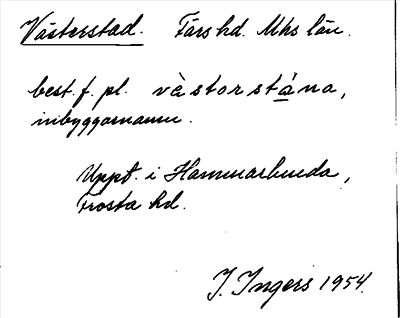 Västerstad. Färs hd. Mhs län.
best. f. pl. vàstorstána,
inbyggarnamn.
Uppt. i Hammarlunda,
Frosta hd.
I. Ingers 1954.